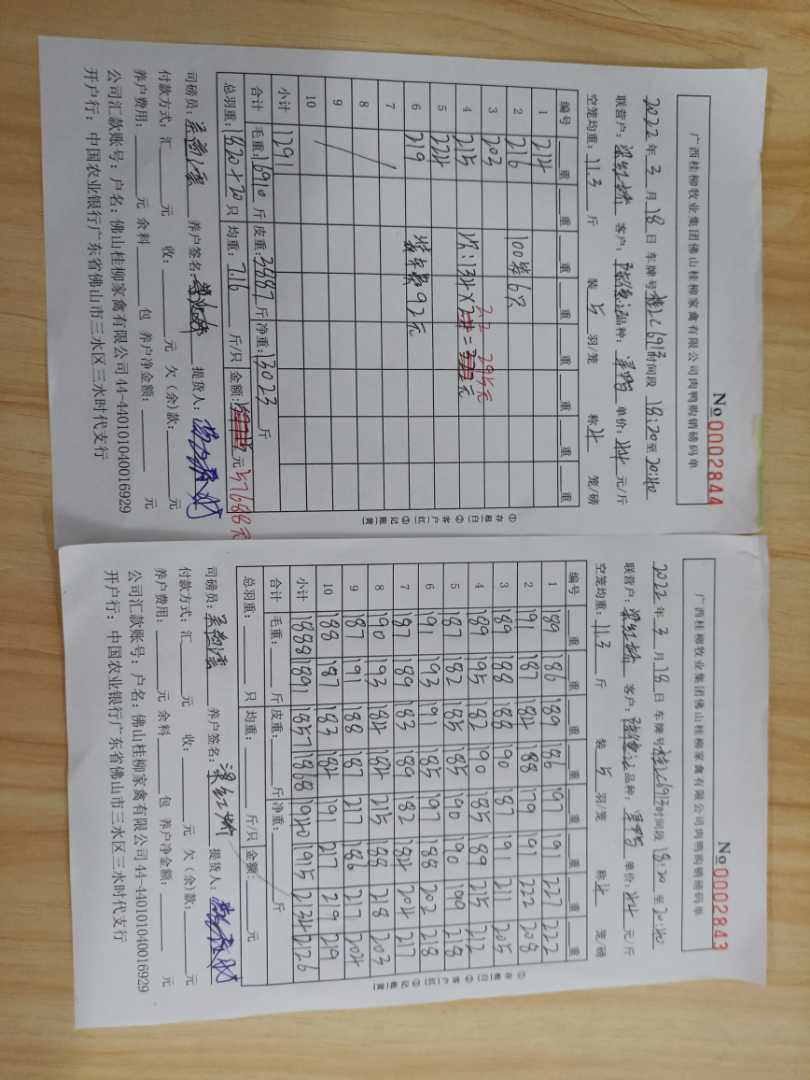 广西桂柳牧业集团佛山桂柳家禽有限公司肉鸭购销磅码单
No 0002844
2022 年 3 月 18 日 车牌号 桂LC6913 时间段 18:20 至 20:40
联营户: 客户: 品种: 单价: 4.4 元/斤
空笼均重: 11.3 斤 装 5 羽/笼 称 4 笼/磅
编号 重 重 重 重 重 重 重 重
1 224
2 216 100 6只
3 203
4 215 次: 134×2.2=295元
5 224
6 219 92元
7
8
9
10
小计 1291
合计 毛重: 16910 斤 皮重: 3887 斤 净重: 13023 斤
总羽重: 1820+20 只 均重: 7.16 斤/只 金额: 元 57688元
司磅员: 养户签名: 提货人:
付款方式: 汇 元 收: 元 欠(余)款: 元
养户费用: 元 余料 包 养户净金额: 元
公司汇款账号: 户名: 佛山桂柳家禽有限公司 44-440101040016929
开户行: 中国农业银行广东省佛山市三水区三水时代支行
①存根(白) ②客户(红) ③记账(黄)
广西桂柳牧业集团佛山桂柳家禽有限公司肉鸭购销磅码单
No 0002843
2022 年 3 月 18 日 车牌号 桂LC6913 时间段 18:20 至 20:40
联营户: 梁红娇 客户: 品种: 单价: 4.4 元/斤
空笼均重: 11.3 斤 装 5 羽/笼 称 4 笼/磅
编号 重 重 重 重 重 重 重 重
1 189 186 189 186 197 191 227 222
2 191 187 184 188 179 191 222 208
3 189 188 188 190 187 191 211 205
4 189 195 182 190 185 189 215 212
5 187 182 185 185 190 190 209 218
6 191 193 191 185 197 188 202 218
7 187 189 183 189 182 184 204 217
8 190 193 184 184 215 188 218 203
9 187 191 188 187 217 186 217 204
10 188 187 183 184 191 217 219 219
小计 1888 1891 1857 1868 1940 1915 2134 2126
合计 毛重: 斤 皮重: 斤 净重: 斤
总羽重: 只 均重: 斤/只 金额: 元
司磅员: 养户签名: 梁红娇 提货人:
付款方式: 汇 元 收: 元 欠(余)款: 元
养户费用: 元 余料 包 养户净金额: 元
公司汇款账号: 户名: 佛山桂柳家禽有限公司 44-440101040016929
开户行: 中国农业银行广东省佛山市三水区三水时代支行
①存根(白) ②客户(红) ③记账(黄)